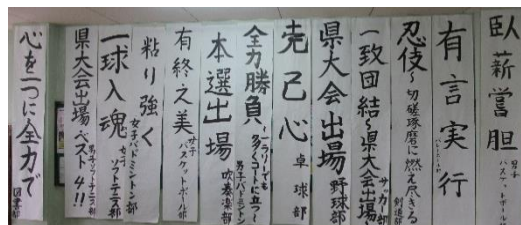 臥薪嘗胆
男子
バスケットボール部
有言実行
バレーボール部
忍伎〜切磋琢磨に燃え尽きる
剣道部
一致団結〜県大会出場〜
サッカー部
県大会出場
野球部
克己心
卓球部
全力勝負
〜一ラリーでも
多くコートに立つ〜
男子バドミントン部
本選出場
吹奏楽部
有終之美
女子
バスケットボール部
粘り強く
女子バドミントン部
一球入魂
女子ソフトテニス部
県大会出場ベスト4!!
男子ソフトテニス部
心を一つに全力で